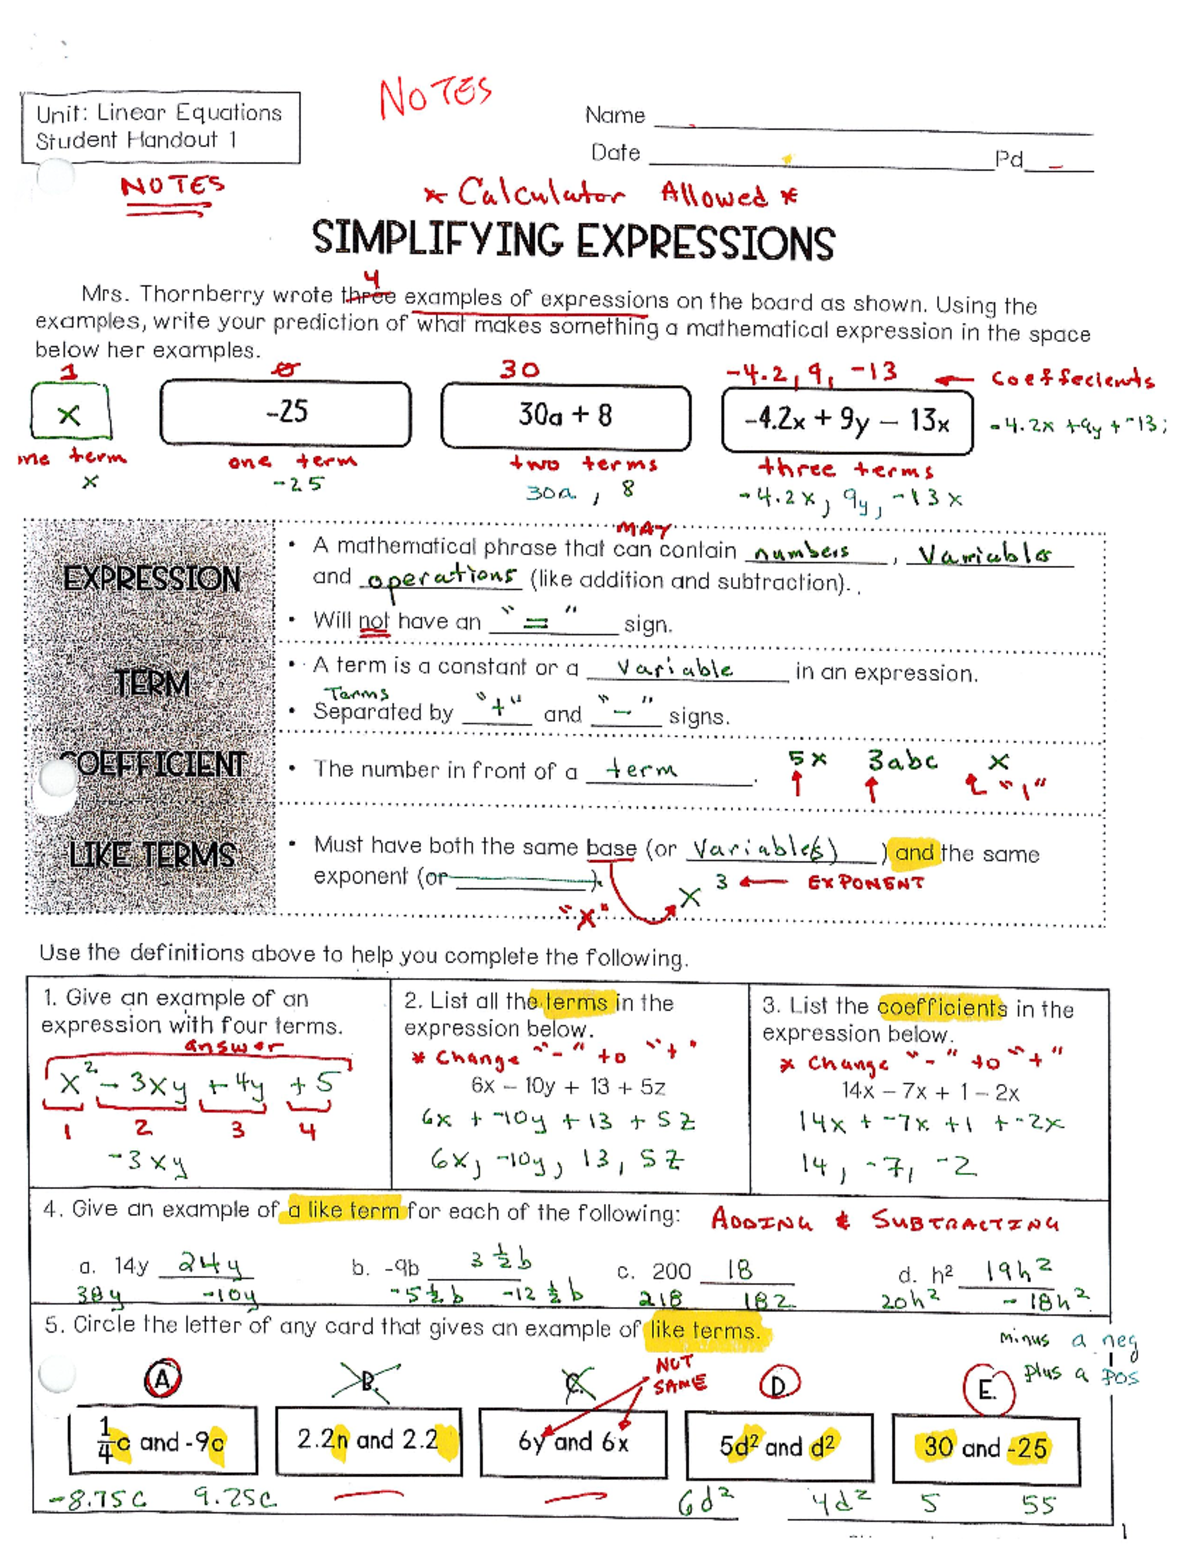 NOTES
Unit: Linear Equations
Student Handout 1
Name
Date Pd
NOTES
* Calculator Allowed *
SIMPLIFYING EXPRESSIONS
4
Mrs. Thornberry wrote three examples of expressions on the board as shown. Using the
examples, write your prediction of what makes something a mathematical expression in the space
below her examples.
1 30 -4.2, 9, -13 ← Coeffecients
x -25 30a + 8 -4.2x + 9y – 13x -4.2x +9y + -13;
one term two terms three terms
x -25 30a, 8 -4.2x, 9y, -13x
MAY
EXPRESSION
• A mathematical phrase that can contain numbers, Variables
and operations (like addition and subtraction).
• Will not have an "=" sign.
TERM
• A term is a constant or a Variable in an expression.
Terms
• Separated by "+" and "-" signs.
COEFFICIENT
• The number in front of a term. 5x 3abc x
"1"
LIKE TERMS
• Must have both the same base (or Variable(s)) and the same
exponent (or ). x 3 ← EXPONENT
"x"
Use the definitions above to help you complete the following.
1. Give an example of an
expression with four terms.
answer
x² - 3xy + 4y + 5
1 2 3 4
-3xy
2. List all the terms in the
expression below.
* Change "-" to "+"
6x – 10y + 13 + 5z
6x + -10y + 13 + 5z
6x, -10y, 13, 5z
3. List the coefficients in the
expression below.
* Change "-" to "+"
14x – 7x + 1 – 2x
14x + -7x + 1 + -2x
14, -7, -2
4. Give an example of a like term for each of the following: ADDING & SUBTRACTING
a. 14y 24y b. -9b 3 1/2 b c. 200 18 d. h² 19h²
38y -10y -5 1/2 b -12 1/2 b 218 182 20h² -18h²
5. Circle the letter of any card that gives an example of like terms.
minus a neg
plus a pos
NOT
SAME
A. B. C. D. E.
1/4c and -9c 2.2n and 2.2 6y and 6x 5d² and d² 30 and -25
-8.75c 9.25c 6d² 4d² 5 55
1